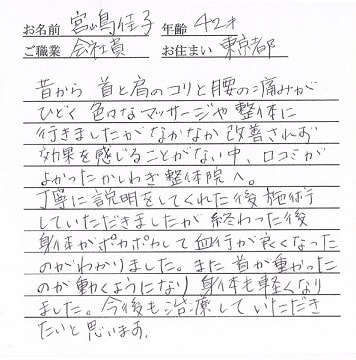 お名前 宮嶋佳子 年齢 42才
ご職業 会社員 お住まい 東京都
昔から 首と肩のコリと腰の痛みが
ひどく 色々なマッサージや整体に
行きましたが なかなか 改善されず
効果を感じることがない中、口コミが
よかったかしわぎ整体院へ。
丁寧に説明をしてくれた後 施術
していただきましたが 終わった後
身体がポカポカして血行が良くなった
のがわかりました。また首が重かった
のが動くようになり 身体も軽くなり
ました。今後も治療していただき
たいと思います。